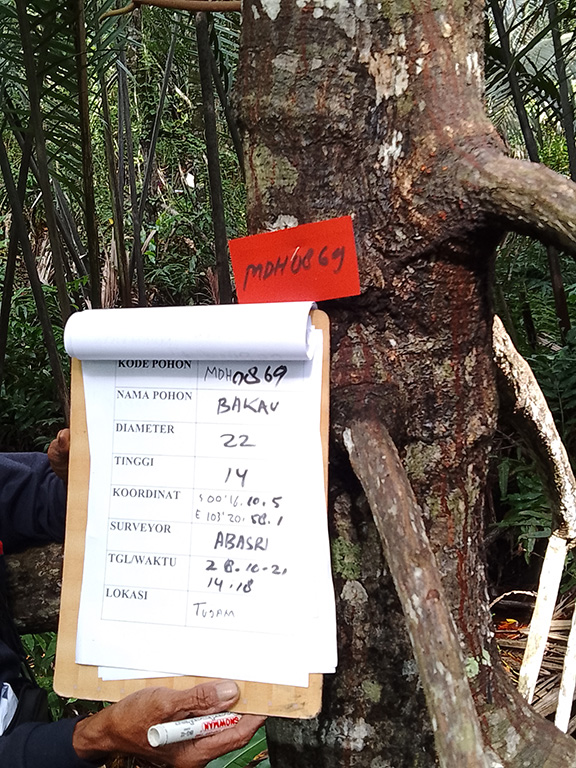 MDH0869
KODE POHON MDH0869
NAMA POHON BAKAU
DIAMETER 22
TINGGI 14
KOORDINAT S 00°16.10.5
E 103°20.58.1
SURVEYOR ABASRI
TGL/WAKTU 28.10-21
14.18
LOKASI TUGAM
SNOWMAN